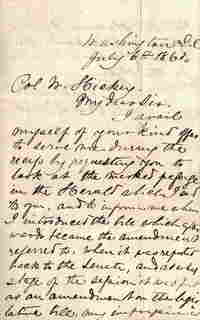 Washington D.C.
July 6th 186
Col. W. Hickey.
My dear Sir.
I avail
myself of your kind offer
to serve me during the
recess by requesting you to
look at the marked passage
in the Herald which I send
to you, and to inform me when
I introduced the bill which
words became the amendment
referred to, when it was reported
back to the Senate, and at what
stage of the session it was put
as an amendment on the legis
lative bill. my